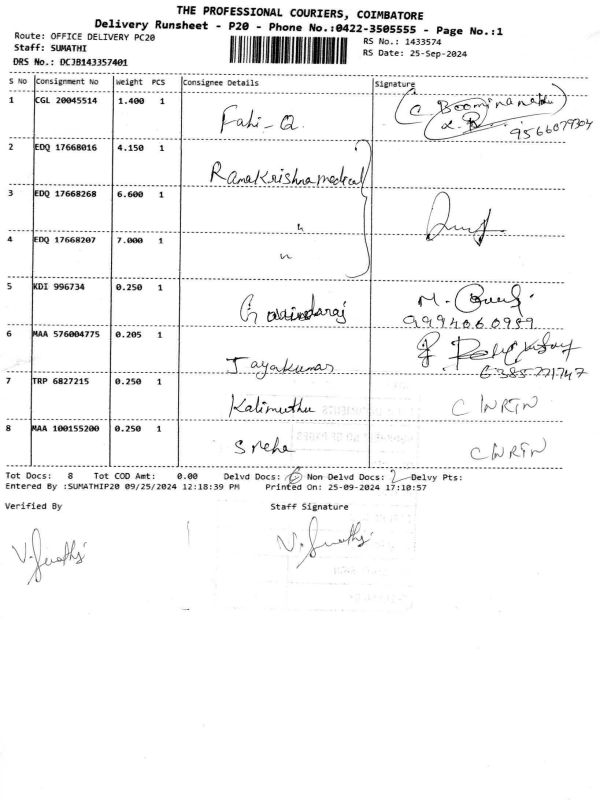 THE PROFESSIONAL COURIERS, COIMBATORE
Delivery Runsheet - P20 - Phone No.:0422-3505555 - Page No.:1
Route: OFFICE DELIVERY PC20
RS No.: 1433574
Staff: SUMATHI
RS Date: 25-Sep-2024
DRS No.: DCJB143357401
S No Consignment No Weight PCS Consignee Details Signature
1 CGL 20045514 1.400 1
9566079304
2 EDQ 17668016 4.150 1 Ramakrishna medical
3 EDQ 17668268 6.600 1 "
4 EDQ 17668207 7.000 1 "
5 KDI 996734 0.250 1 Govindaraj M.
9994060989
6 MAA 576004775 0.205 1 Jayakumar
6385771747
7 TRP 6827215 0.250 1 Kalimuthu CNRTN
8 MAA 100155200 0.250 1 Sneha CNRTN
Tot Docs: 8 Tot COD Amt: 0.00 Delvd Docs: 6 Non Delvd Docs: 2 Delvy Pts:
Entered By :SUMATHIP20 09/25/2024 12:18:39 PM Printed On: 25-09-2024 17:10:57
Verified By Staff Signature